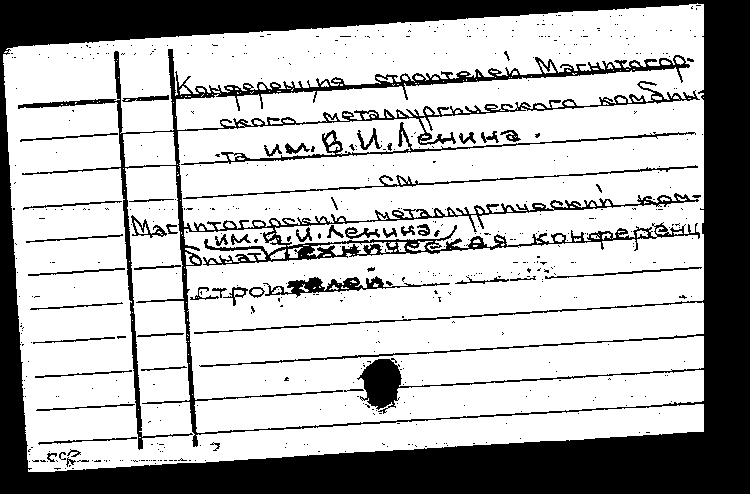 Конференция строителей Магнитогор-
ского металлургического комбина
та им. В.И.Ленина.
см.
Магнитогорский металлургический ком-
им. В.И.Ленина.
бинат техническая конференци
строителей.
сср